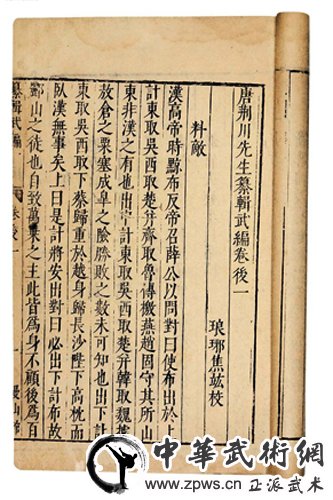 唐荊川先生纂輯武編卷後一
琅琊焦竑校
料敵
漢高帝時黥布反帝召薛公以問對曰使布出於上
計東取吳西取楚并齊取魯傳檄燕趙固守其所山
東非漢之有也出中計東取吳西取楚并韓取魏據
故倉之粟塞成皋之險勝敗之數未可知也出下計
東取吳西取下蔡歸重於越身歸長沙陛下高枕而
臥漢無事矣上曰是計將安出對曰必出下計布故
酈山之徒也自致萬乘之主此皆為身不顧後為百
纂輯武編 卷後一 一 曼山館
中華武術網
www.zpws.cn 正派武术